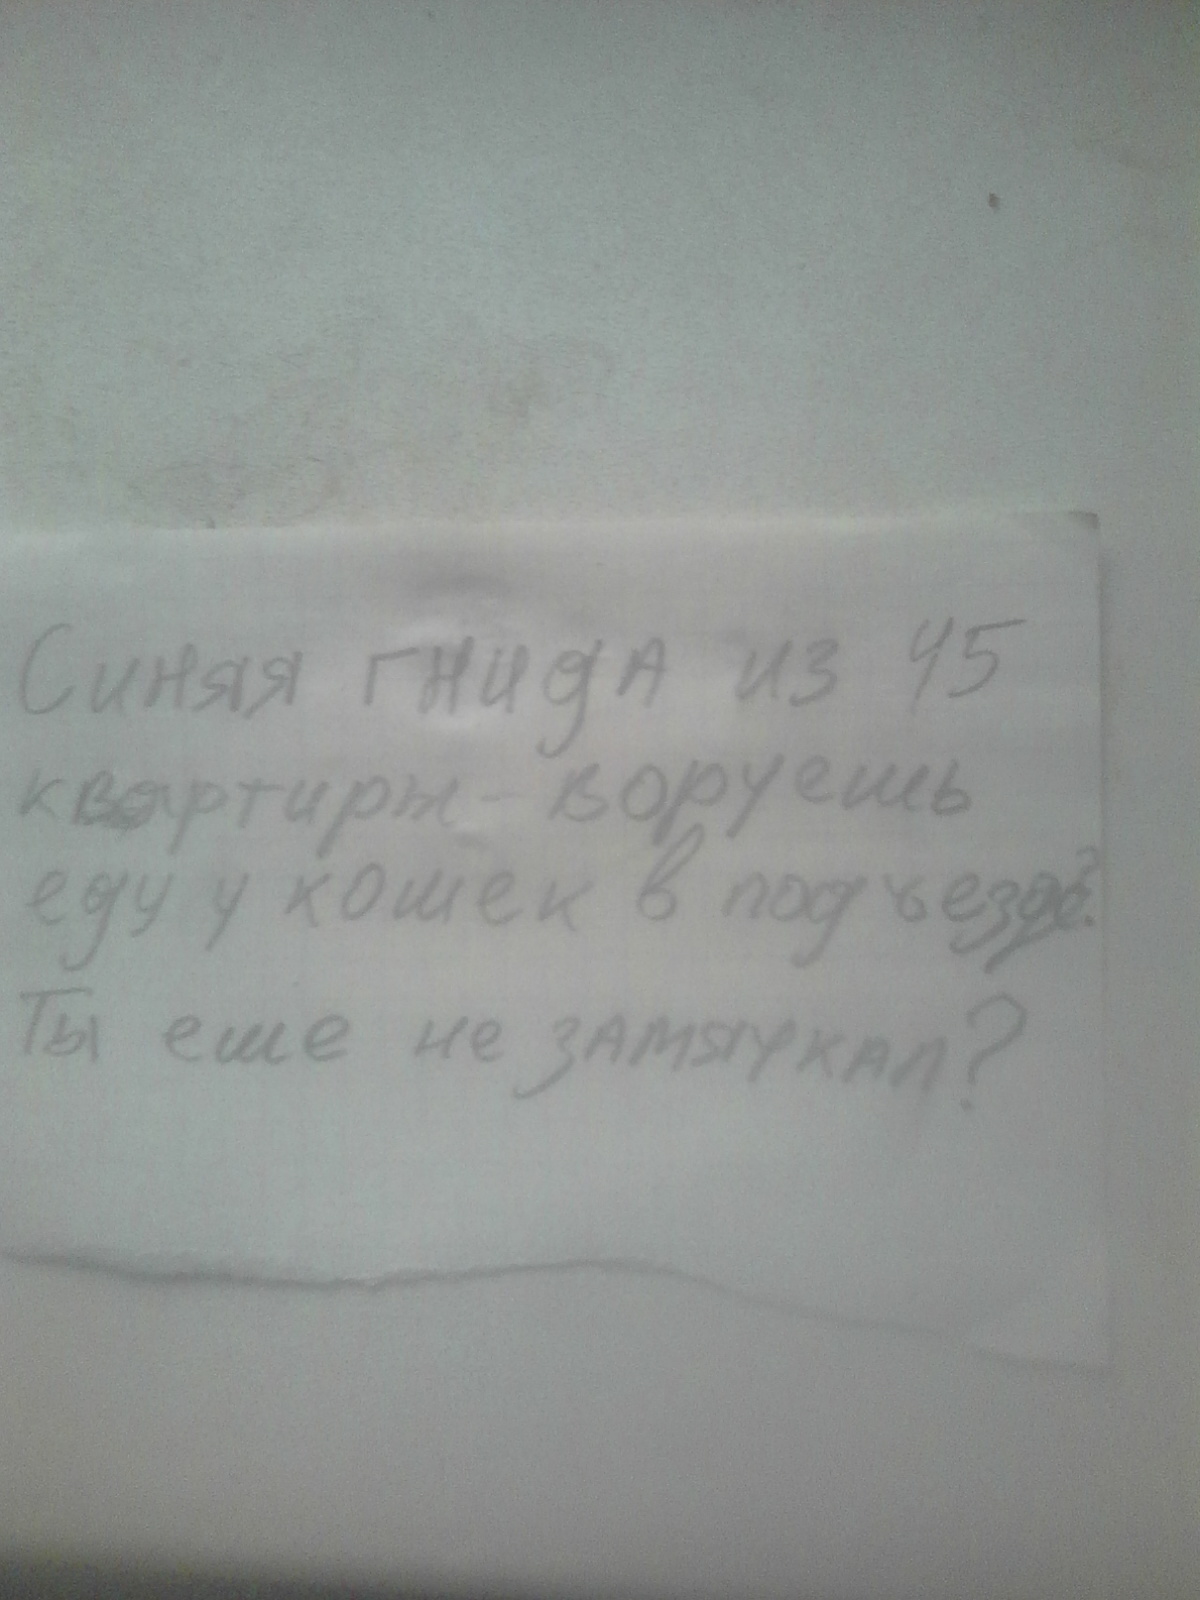 Синяя гнида из 45
квартиры - воруешь
еду у кошек в подъезде?
Ты еше не замяукал?